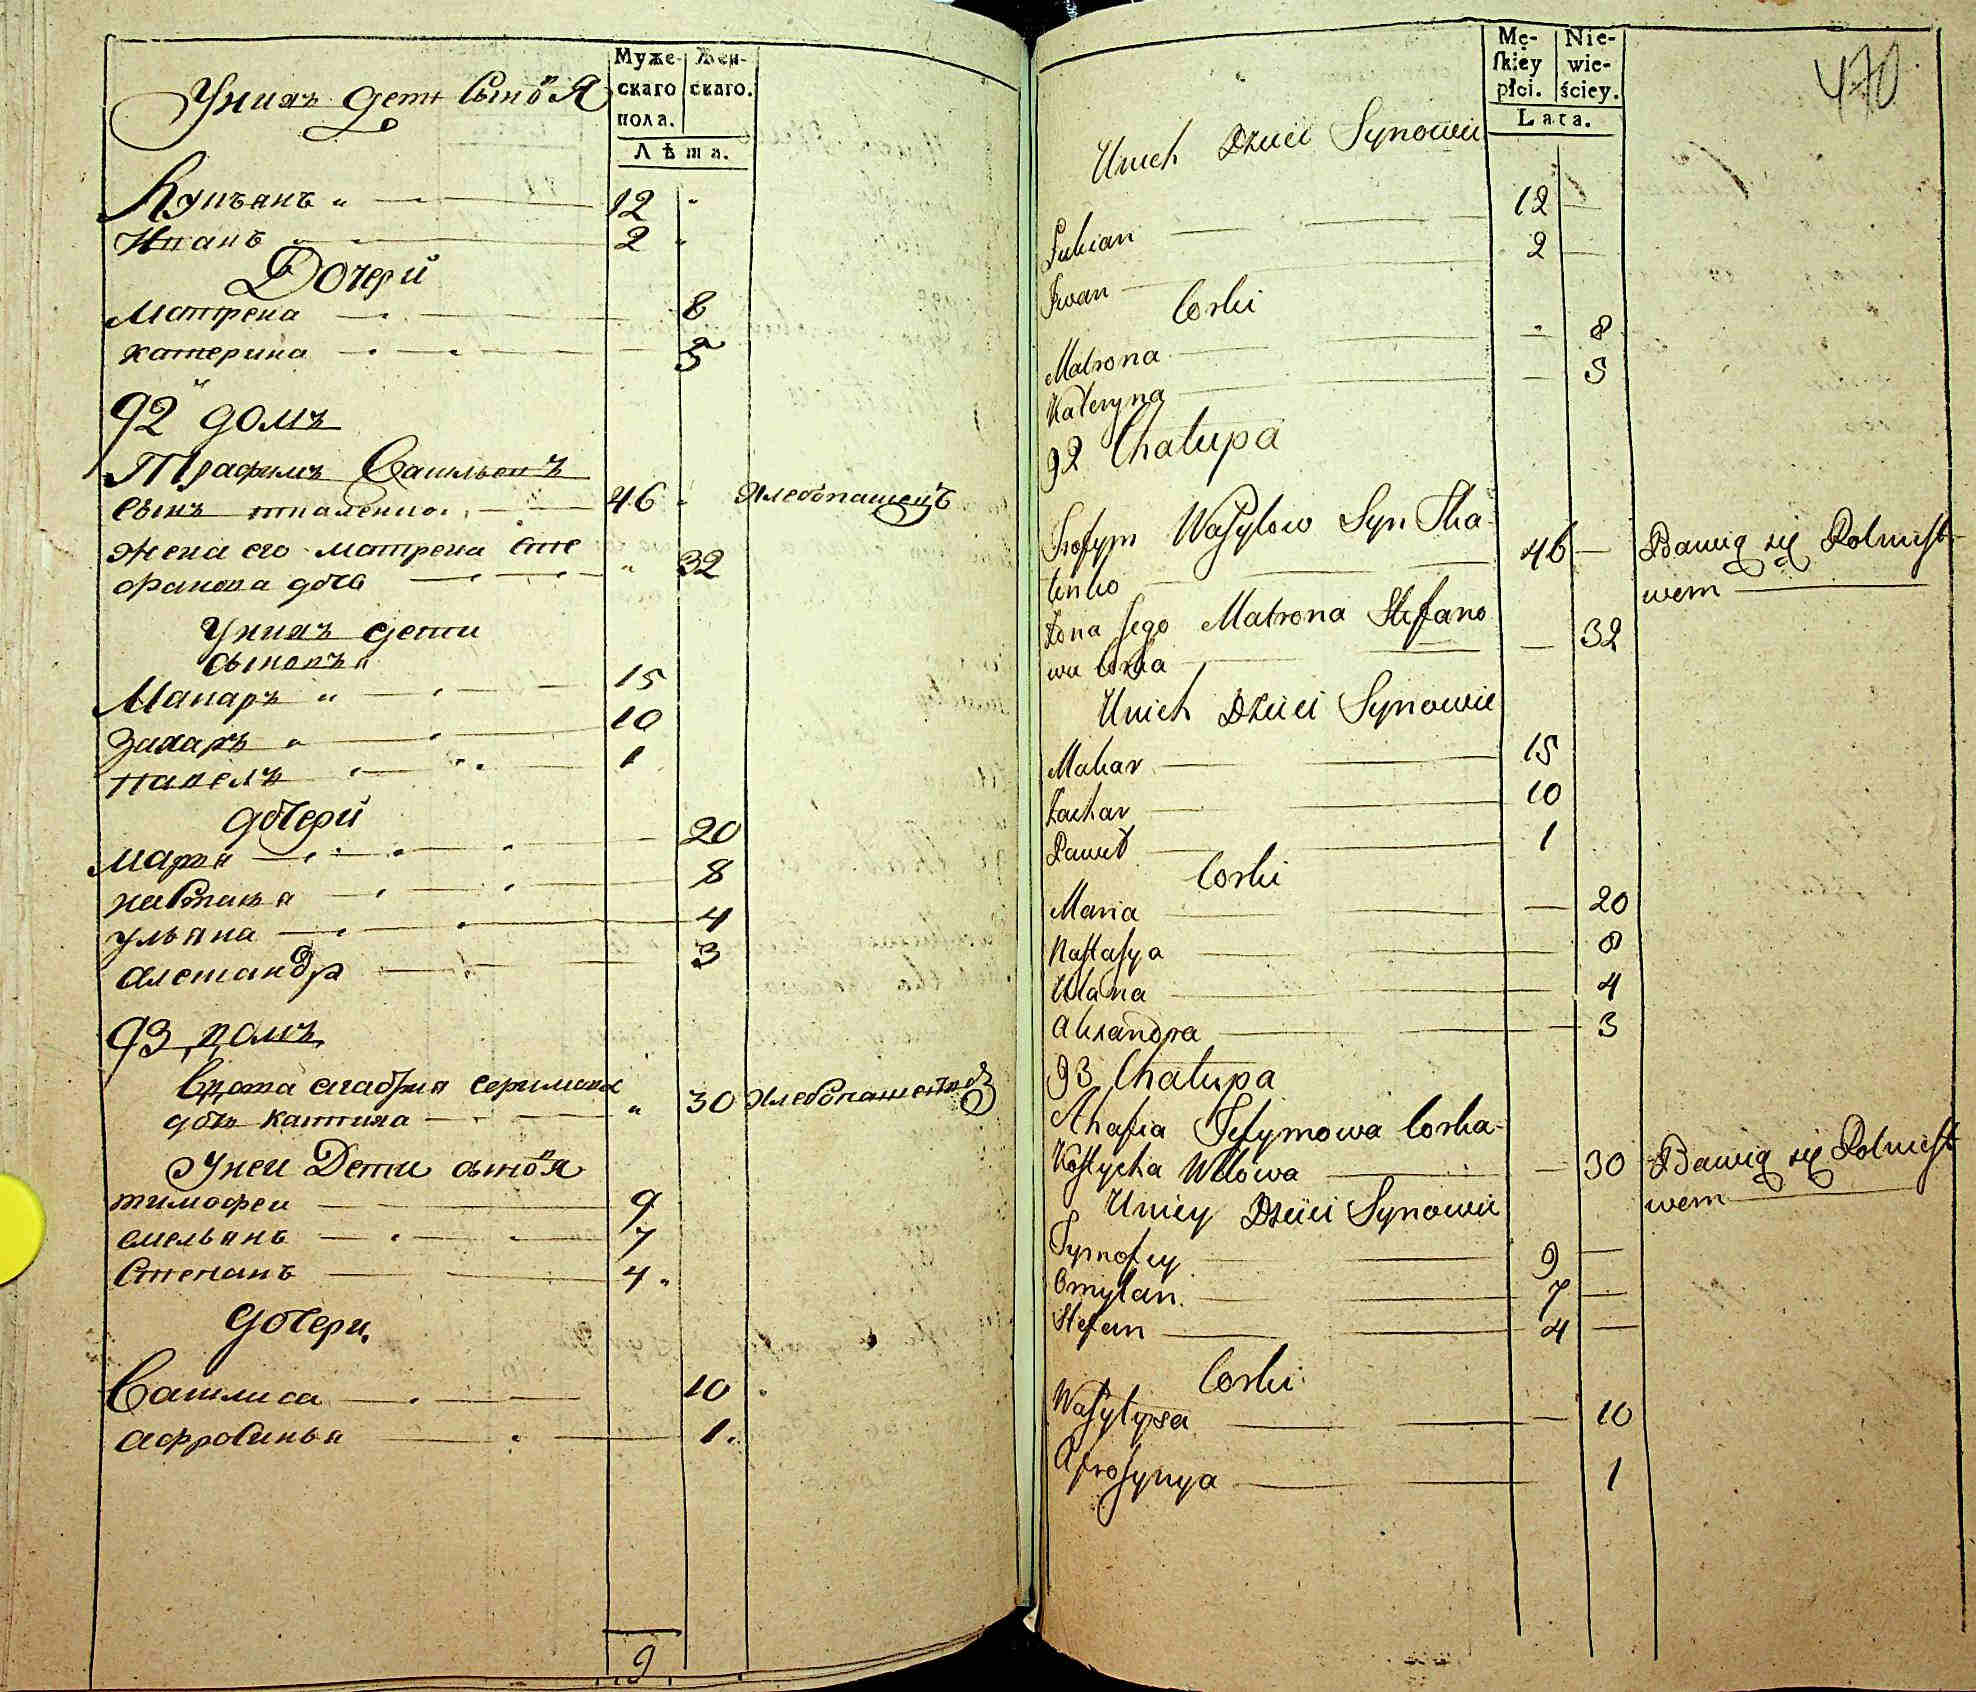 Муже-
скаго
пола.
Жен-
скаго.
Лѣта.
Унихъ дети
12
Иванъ 2
Дочери
матрена 8
катерина 5
92 домъ
Трафимъ Васильевъ
сынъ 46 хлебопашецъ
жена его матрена сте
фанова дочь 32
Унихъ дети
сыновъя
Макаръ 15
Захаръ 10
павелъ 1
дочери
марья 20
настасья 8
ульяна 4
алесандра 3
93 домъ
вдова агафия
30
Унеи Дети
тимофеи 9
емельянъ 7
Степанъ 4
дочери
Василиса 10
афросинья 1
9
Mę-
skiey
płci.
Nie-
wie-
ściey.
Lata.
470
Unich Dzieci Synowie
12
Iwan 2
Corki
Matrona 8
Kateryna 5
92 Chałupa
Trofym Wasylow Syn Tka
46 Bawią się Rolnicst-
wem
Żona Jego Matrona Stefano
wa Corka 32
Unich Dzieci Synowie
Makar 15
Zachar 10
Paweł 1
Corki
Maria 20
Nastasya 8
Ulana 4
Alexandra 3
93 Chałupa
Ahafia Jefymowa Corka
Wdowa 30 Bawią się Rolnicst
wem
Uniey Dzieci Synowie
Tymofey 9
Omylan 7
Stefan 4
Corki
Wasylysa 10
Afrosynya 1